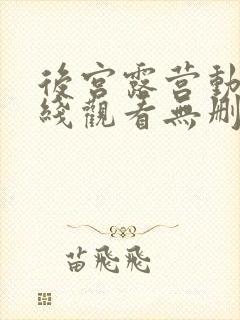 後宮露営動
綫觀看無刪
苗飛飛